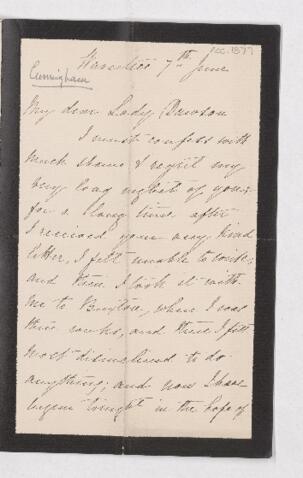 Acc. 1877
7th June
Cunningham
My dear Lady Dawson
I must confess with
much shame & regret my
very long neglect of yours
for a long time after
I received your very kind
letter, I felt unable to write;
and then I took it with
me to Buxton, where I was
three weeks, and there I felt
most disinclined to do
anything; and now I have
begun tonight in the hope of